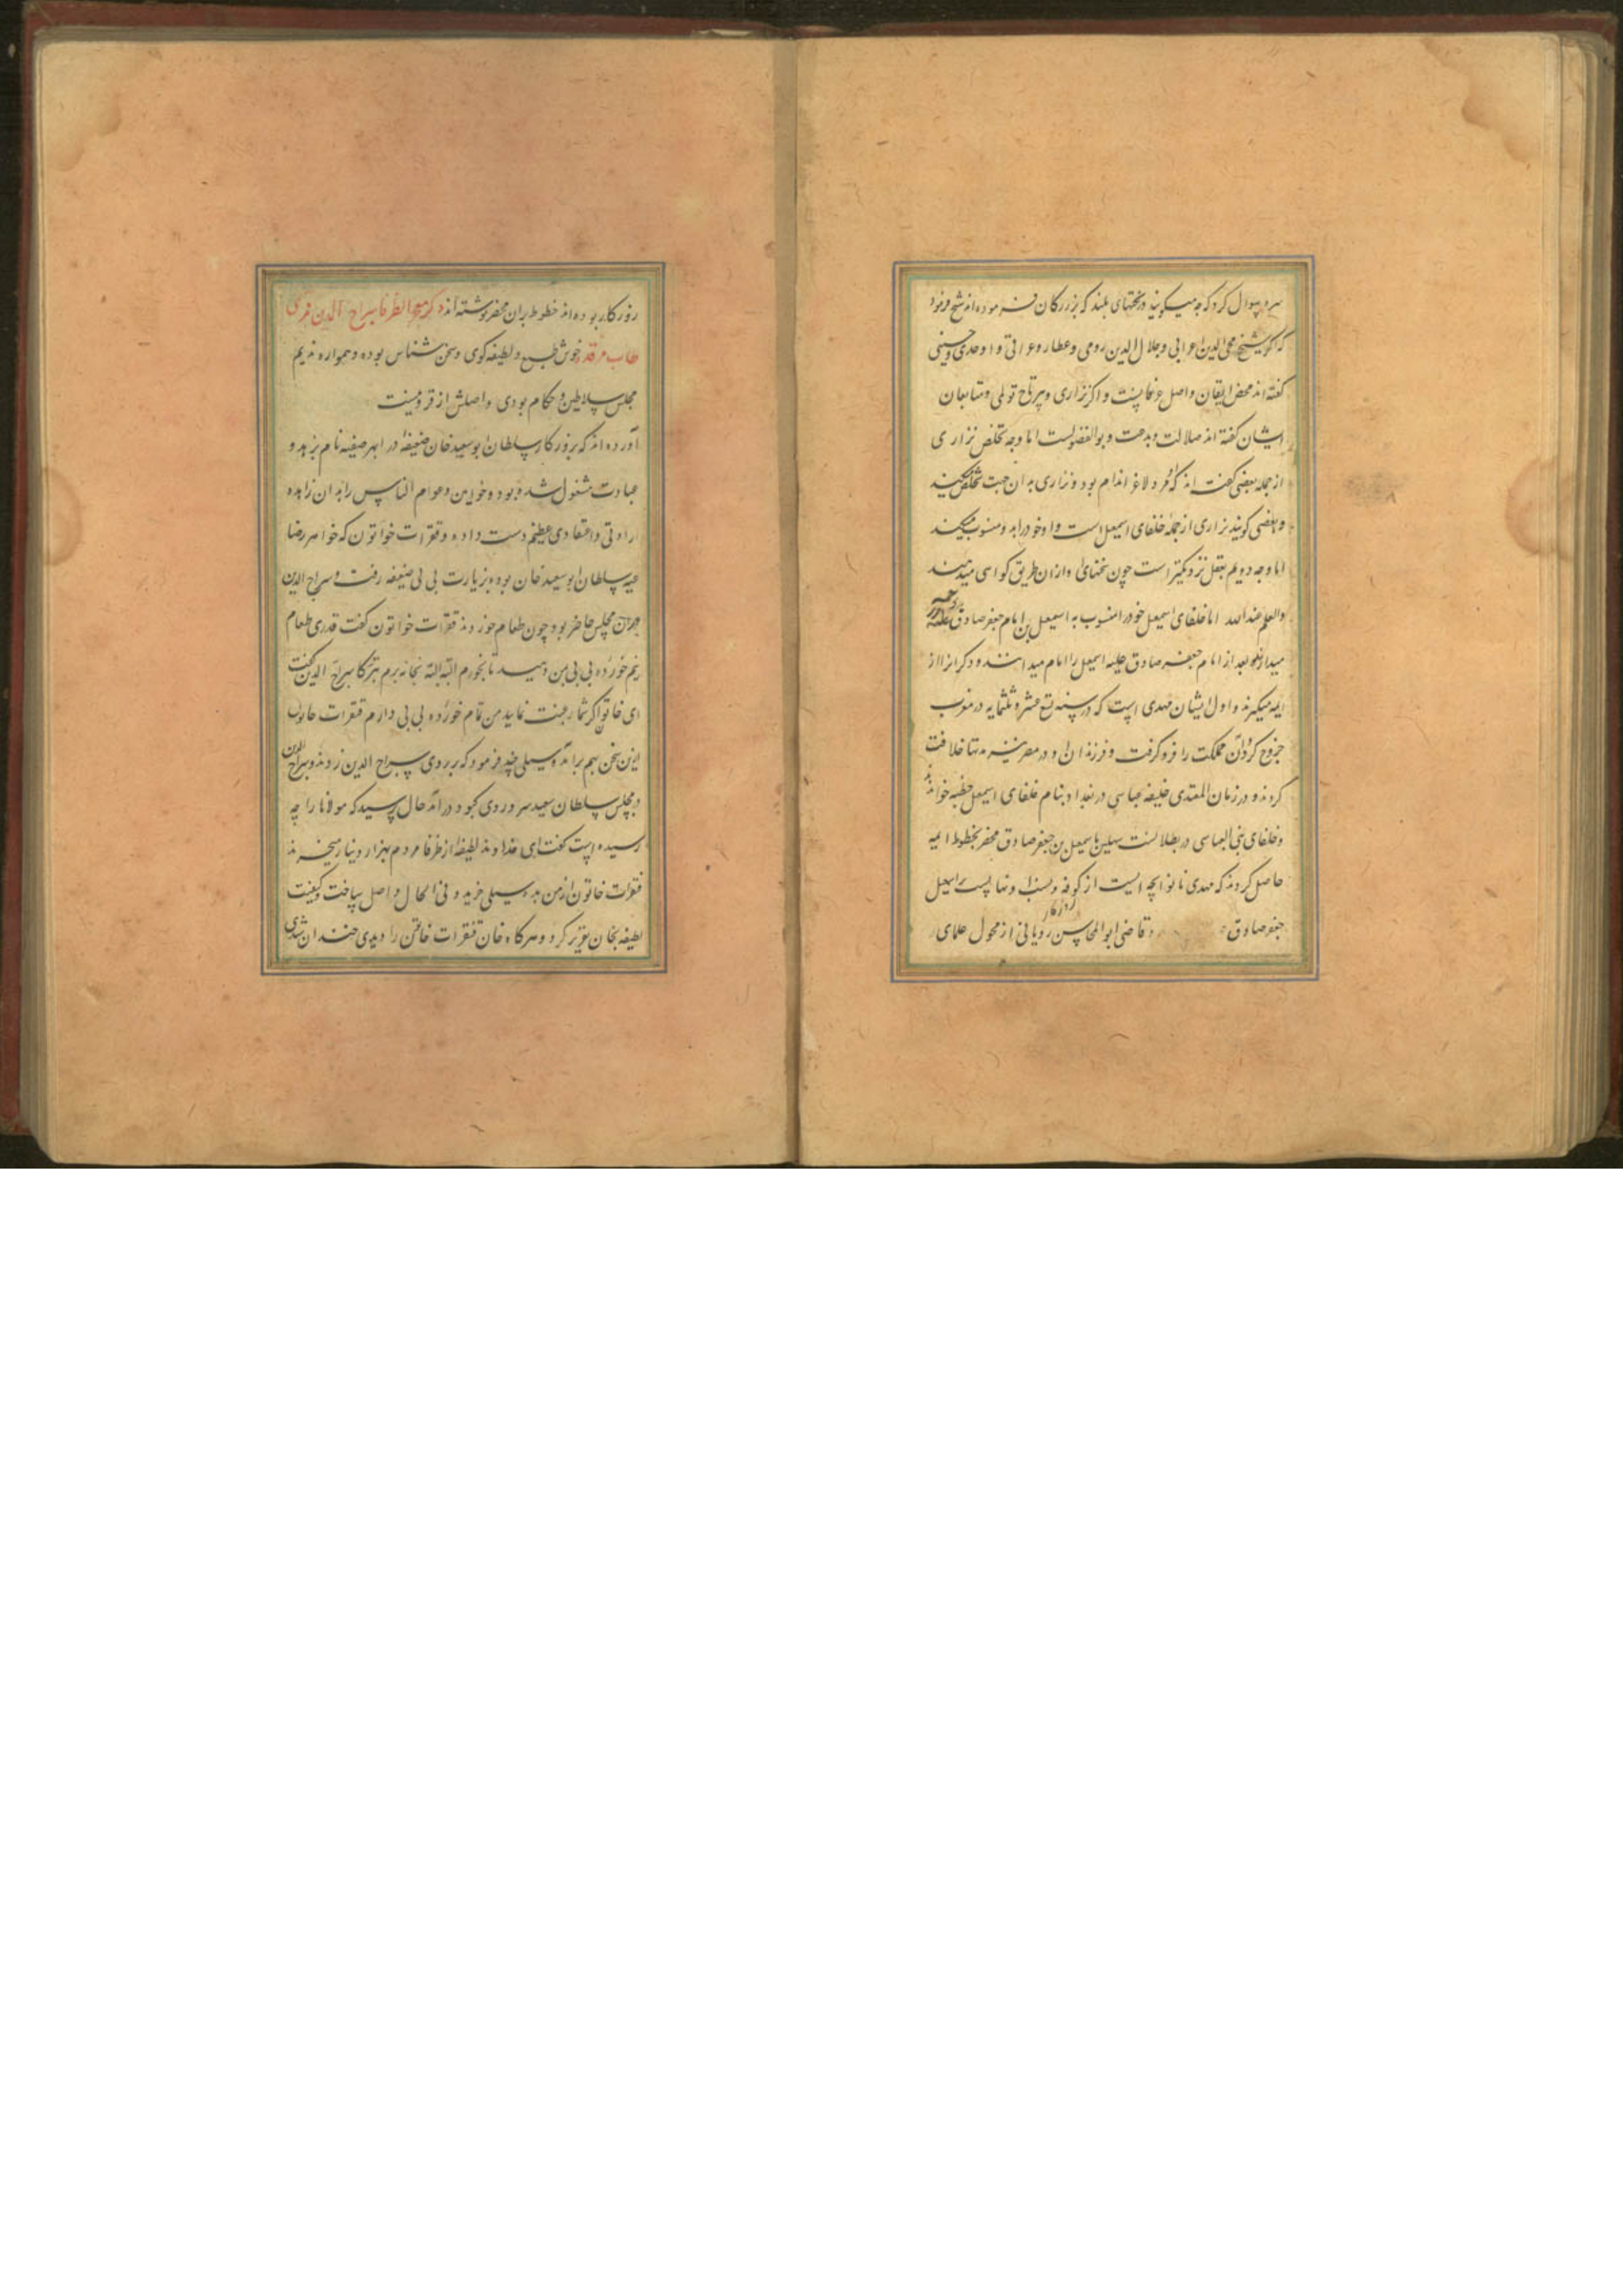 سره سوال کرد که چه میکوئید در سخنهای بلند که بزرکان فرموده اند شیخ فرمود
که اکر شیخ محی الدین اعرابی و جلال الدین رومی و عطار و عراقی و اوحدی و حسینی
کفته اند محض ایقان و اصل عرفانست و اکر نزاری و پیر تاج تولمی و متابعان
ایشان کفته اند ضلالت و بدعت و بوالفضولیست اما وجه تخلص نزاری
از جمله بعضی کفته اند که او مرد لاغر اندام بود و نزاری بدان جهت تخلص میکند
و بعضی کویند نزاری از جمله خلفای اسمعیل است و او خود را بدو منسوب میکند
اما وجه دویم بعقل نزدیکتر است چون سخنهای او از ان طریق کواهی میدهند
والعلم عندالله اما خلفای اسمعیل خود را منسوب به اسمعیل بن امام جعفر صادق علیه
میدارند و بعد از امام جعفر صادق علیه اسمعیل را امام میدانند و دکرانرا از
ایمه میکیرند و اول ایشان مهدی است که در سنه تسع عشر و ثلثمایه در مغرب
خروج کرد و آن مملکت را فرو کرفت و فرزندان او در مصر نیز مدتها خلافت
کردند و در زمان المقتدی خلیفه عباسی در بغداد بنام خلفای اسمعیل خطبه خواندند
و خلفای بنی العباسی در بطلان نسب باسمعیل بن جعفر صادق محضر بخطوط ایمه
حاصل کردند که مهدی نانوا بچه ایست از کوفه و نسب او نه اپسر اسمعیل
جعفر صادق و قاضی ابوالمحاسن رویانی از فحول علمای روزکار
روزکار بوده اند خطوط بران محضر نوشته اند ذکر مفخر الظرفا سراج الدین قمری
طاب مرقده خوش طبع و لطیفه کوی و سخن شناس بوده و همواره ندیم
مجلس سلاطین و حکام بودی و اصلش از قزوینست
آورده اند که بروزکار سلطان ابوسعید خان ضعیفه در ابهر صفیه نام بزهد و
عبادت مشغول شده بود و خواص و عوام الناس را بدان زاهده
ارادتی و اعتقادی عظیم دست داده و قتقرات خواتون که خواهر رضا
عیه سلطان ابوسعید خان بوده بزیارت بی بی ضعیفه رفت و سراج الدین
در آن مجلس حاضر بود چون طعام خوردند قتقرات خواتون کفت قدری طعام
نیم خورده بی بی بمن دهید تا بخورم البته البته بخانه برم تبرکا سراج الدین کفت
ای خاتون اکر شما رغبت نمایید من تمام خورده بی بی دارم قتقرات خاتون
ازین سخن بهم برآمد و سیلی چند فرمود که بر روی سراج الدین زدند و سراج الدین
در مجلس سلطان سعید سر و روی کبود درآمد خان پرسید که مولانا را چه
رسیده است کفت ای خداوند لطیفه از ظرفا مردم بهزار دینار میخرند
قتقرات خاتون از من بده سیلی خرید و فی الحال واصل ساخت و کیفیت
لطیفه بخان تقریر کرد و هرکاه خان قتقرات خاتون را دیدی خندان شدی